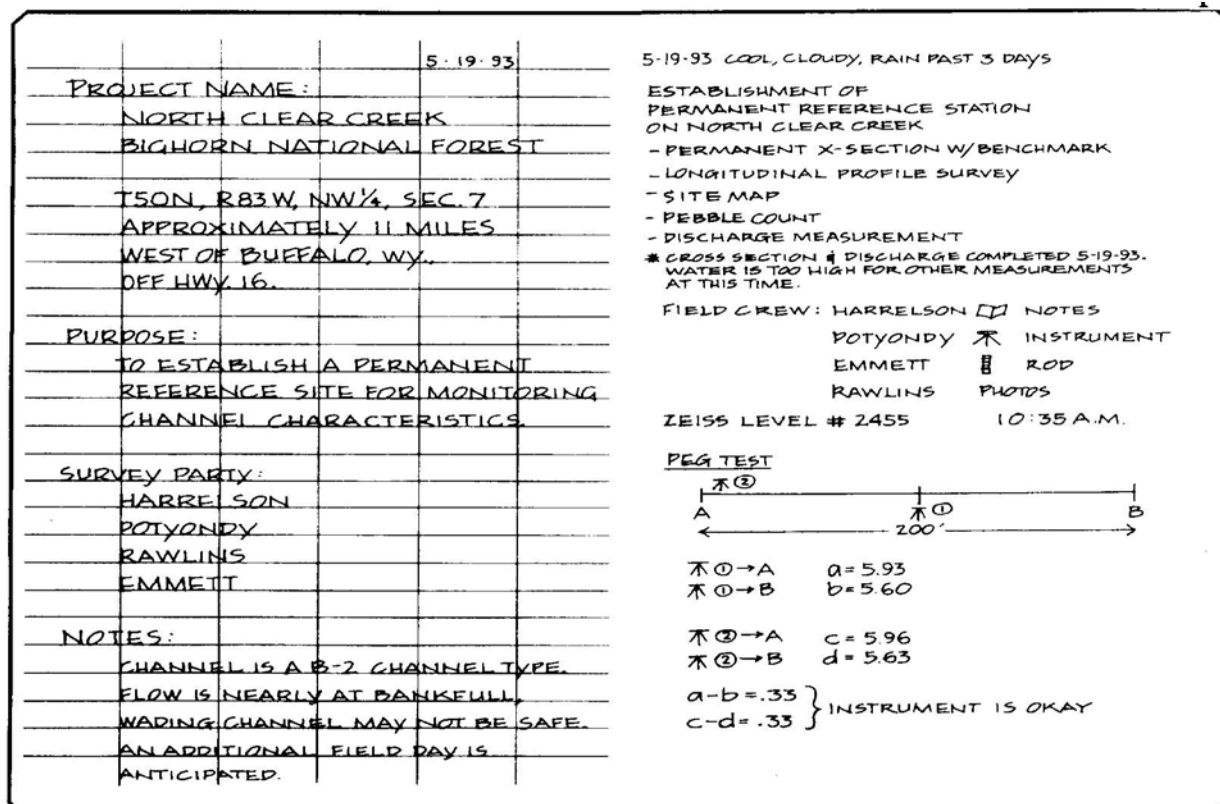 5·19·93
PROJECT NAME:
NORTH CLEAR CREEK
BIGHORN NATIONAL FOREST
T50N, R83W, NW¼, SEC. 7
APPROXIMATELY 11 MILES
WEST OF BUFFALO, WY.
OFF HWY. 16.
PURPOSE:
TO ESTABLISH A PERMANENT
REFERENCE SITE FOR MONITORING
CHANNEL CHARACTERISTICS
SURVEY PARTY:
HARRELSON
POTYONDY
RAWLINS
EMMETT
NOTES:
CHANNEL IS A B-2 CHANNEL TYPE.
FLOW IS NEARLY AT BANKFULL,
WADING CHANNEL MAY NOT BE SAFE.
AN ADDITIONAL FIELD DAY IS
ANTICIPATED.
5-19-93 COOL, CLOUDY, RAIN PAST 3 DAYS
ESTABLISHMENT OF
PERMANENT REFERENCE STATION
ON NORTH CLEAR CREEK
- PERMANENT X-SECTION W/BENCHMARK
- LONGITUDINAL PROFILE SURVEY
- SITE MAP
- PEBBLE COUNT
- DISCHARGE MEASUREMENT
* CROSS SECTION & DISCHARGE COMPLETED 5-19-93.
WATER IS TOO HIGH FOR OTHER MEASUREMENTS
AT THIS TIME.
FIELD CREW: HARRELSON NOTES
POTYONDY INSTRUMENT
EMMETT ROD
RAWLINS PHOTOS
ZEISS LEVEL # 2455 10:35 A.M.
PEG TEST
②
A ① B
200'
①→A a = 5.93
①→B b = 5.60
②→A c = 5.96
②→B d = 5.63
a-b = .33
c-d = .33 } INSTRUMENT IS OKAY